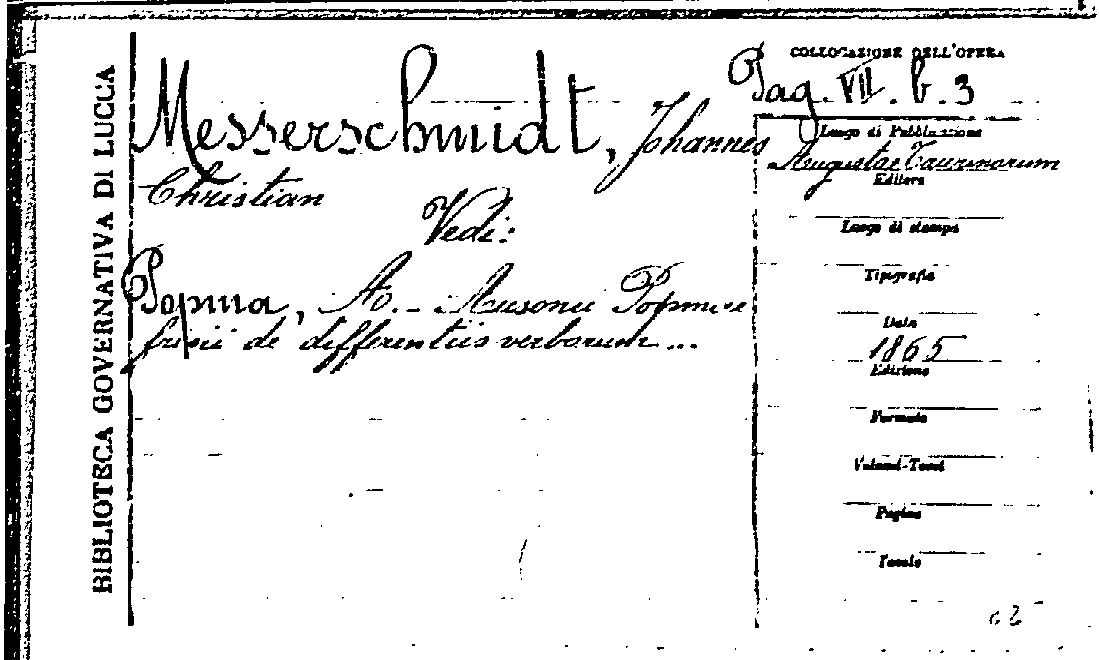 BIBLIOTECA GOVERNATIVA DI LUCCA
Messerschmidt, Johannes
Christian
Vedi:
Popma, A. - Ausonii Popmae
frisii de differentiis verborum...
COLLOCAZIONE DELL'OPERA
Pag. VII. b. 3
Luogo di Pubblicazione
Augustae Taurinorum
Editore
Luogo di stampa
Tipografia
Data
1865
Edizione
Formato
Volumi-Tomi
Pagine
Tavole